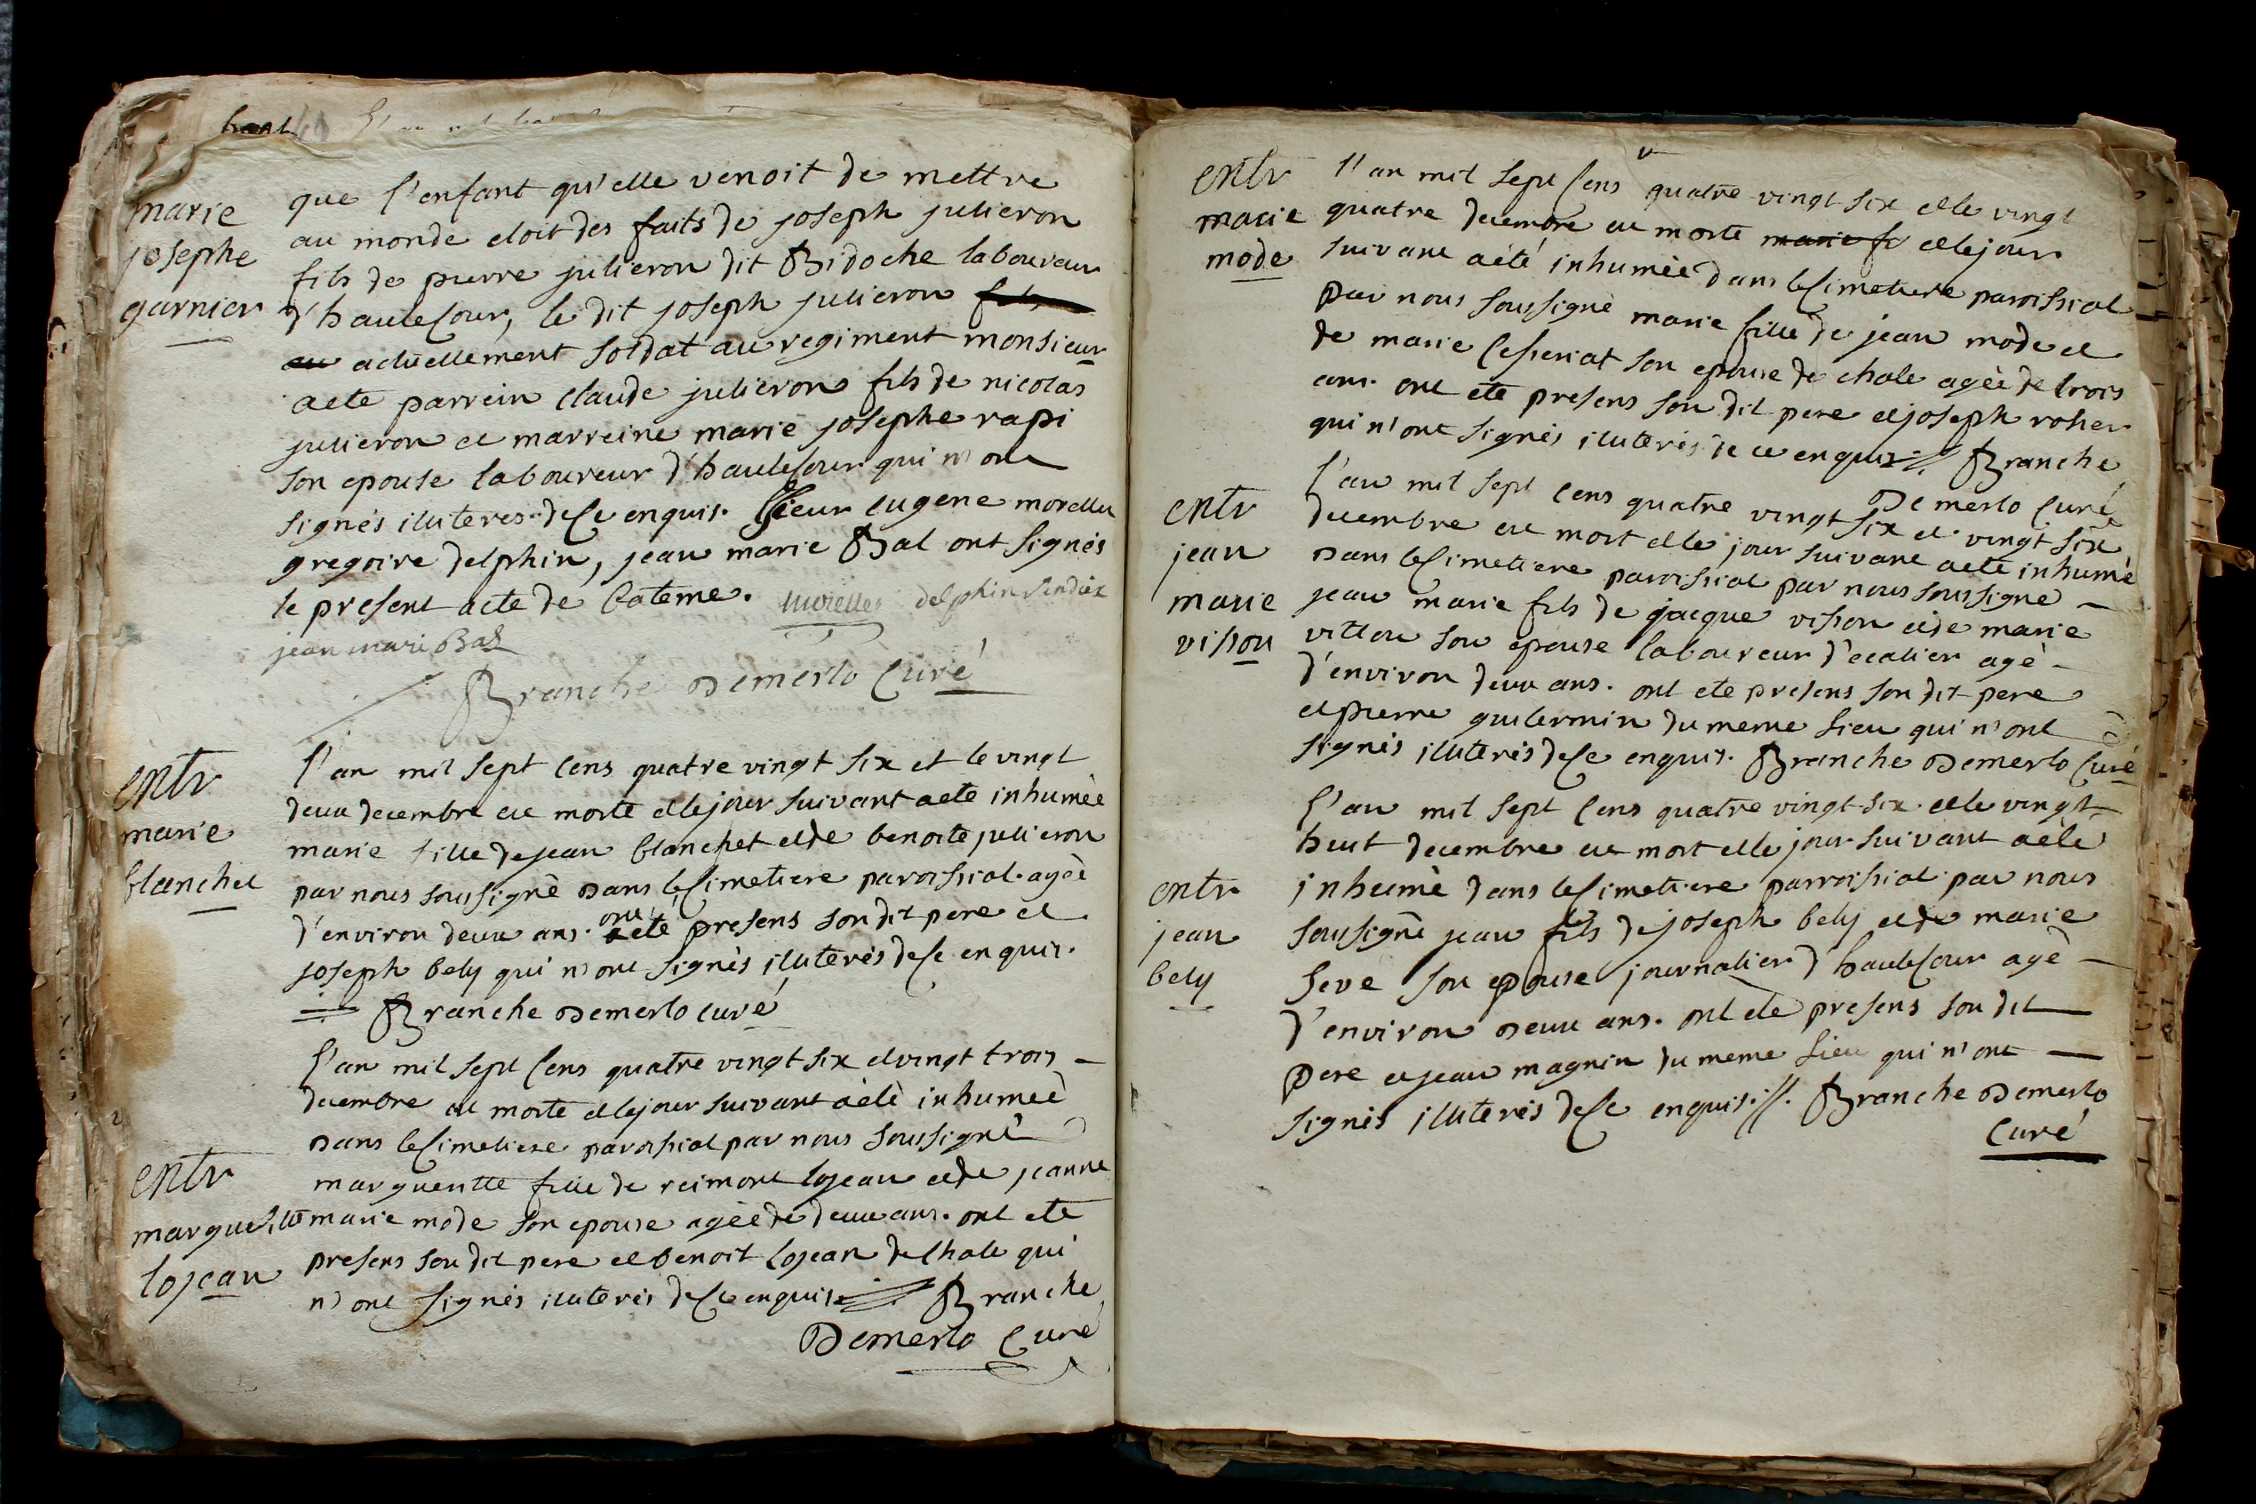 marie
josephe
garnier
que l'enfant qu'elle venoit de mettre
au monde etoit des faits de joseph julieron
fils de pierre julieron dit Bidoche laboureur
d'hautecour, le dit joseph julieron
actuellement soldat au regiment monsieur
a ete parrein claude julieron fils de nicolas
julieron et marreine marie josephe rapi
son epouse laboureur d'hautecour qui n'ont
signés iliteres de ce enquis. Sieur eugene morellet
gregoire delphin, jean marie Bal ont signés
le present acte de bateme. morellet delphin
jean mari Bal
Branche Demerlo Curé
entr
marie
blanchet
l'an mil sept cens quatre vingt six et le vingt
deux decembre est morte et le jour suivant a ete inhumèe
marie fille de jean blanchet et de benoite julieron
par nous soussignè dans le cimetiere paroissial agèe
d'environ deux ans. ont eté presens son dit pere et
joseph bely qui n'ont signès iliterés de ce enquis.
Branche Demerlo curé
entr
marguerite
lojean
l'an mil sept cens quatre vingt six et vingt trois
decembre est morte et le jour suivant a étè inhumeè
dans le cimetiere paroissial par nous soussignè
margueritte fille de reimont lojean et de jeanne
marie mode son epouse agèe de deux ans. ont ete
presens son dit pere et benoit lojean de chale qui
n'ont signès iliterés de ce enquis Branche
Demerlo Curé
entr
marie
mode
l'an mil sept cens quatre vingt six et le vingt
quatre decembre est morte marie f et le jour
suivant a été inhumèe dans le cimetiere paroissial
par nous soussigné marie fille de jean mode et
de marie son epouse de chale agèe de trois
ans. ont ete presens son dit pere et joseph roher
qui n'ont signès iliterés de ce enquis // Branche
Demerlo Curé
entr
jean
marie
visson
l'an mil sept cens quatre vingt six et vingt six
decembre est mort et le jour suivant a ete inhumè
dans le cimetiere paroissial par nous soussigne
jean marie fils de jacque visson et de marie
vitton son epouse laboureur d'ecalier agè
d'environ deux ans. ont ete presens son dit pere
et pierre guilermin du meme lieu qui n'ont
signès iliterés de ce enquis. Branche Demerlo Curé
entr
jean
bely
l'an mil sept cens quatre vingt six et le vingt
huit decembre est mort et le jour suivant a ète
inhumè dans le cimetiere parroissial par nous
soussignè jean fils de joseph bely et de marie
seve son epouse journalier d'hautecour agè
d'environ deux ans. ont ete presens son dit
pere et jean magnin du meme lieu qui n'ont
signès iliterés de ce enquis. //. Branche Demerlo
Curé